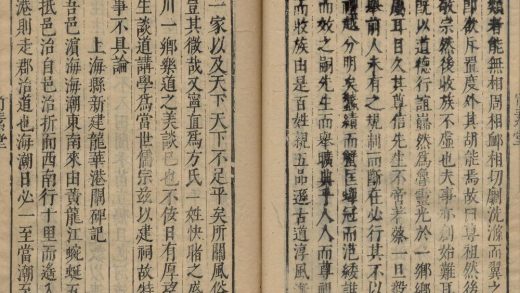 類者能無相周相卹相切劘洗滌而翼之
即欲斥置度外其胡能焉故曰尊祖然後
敬宗然後收族不虛也夫事亦創始難耳
既以道德行誼巋然為魯靈光於一鄉鄉
屬耳目久其尊信先生不啻若蔡一旦毅
舉前人未有之規制而斷在必行其不以
越分明矣績而蟹匡蟬冠而范緌誰
而效之嗣先生而舉曠典乎人人而尊祖
而收族由是百姓親五品遜古道淳風
一家以及天下天下不足平矣所關風俗
豈其微哉又寧直為方氏一姓快睹之盛
川一鄉樂道之美談已也不佞日有厚望
生談道講學為當世儒宗茲以建祠故特
事不具論
上海縣新建龍華港閘碑記
吾邑濱海海潮東南來由黃龍江蜿蜒五
抵邑治自邑治折而西南行十里而遙入
港則走郡治道也海潮日必一至當潮至